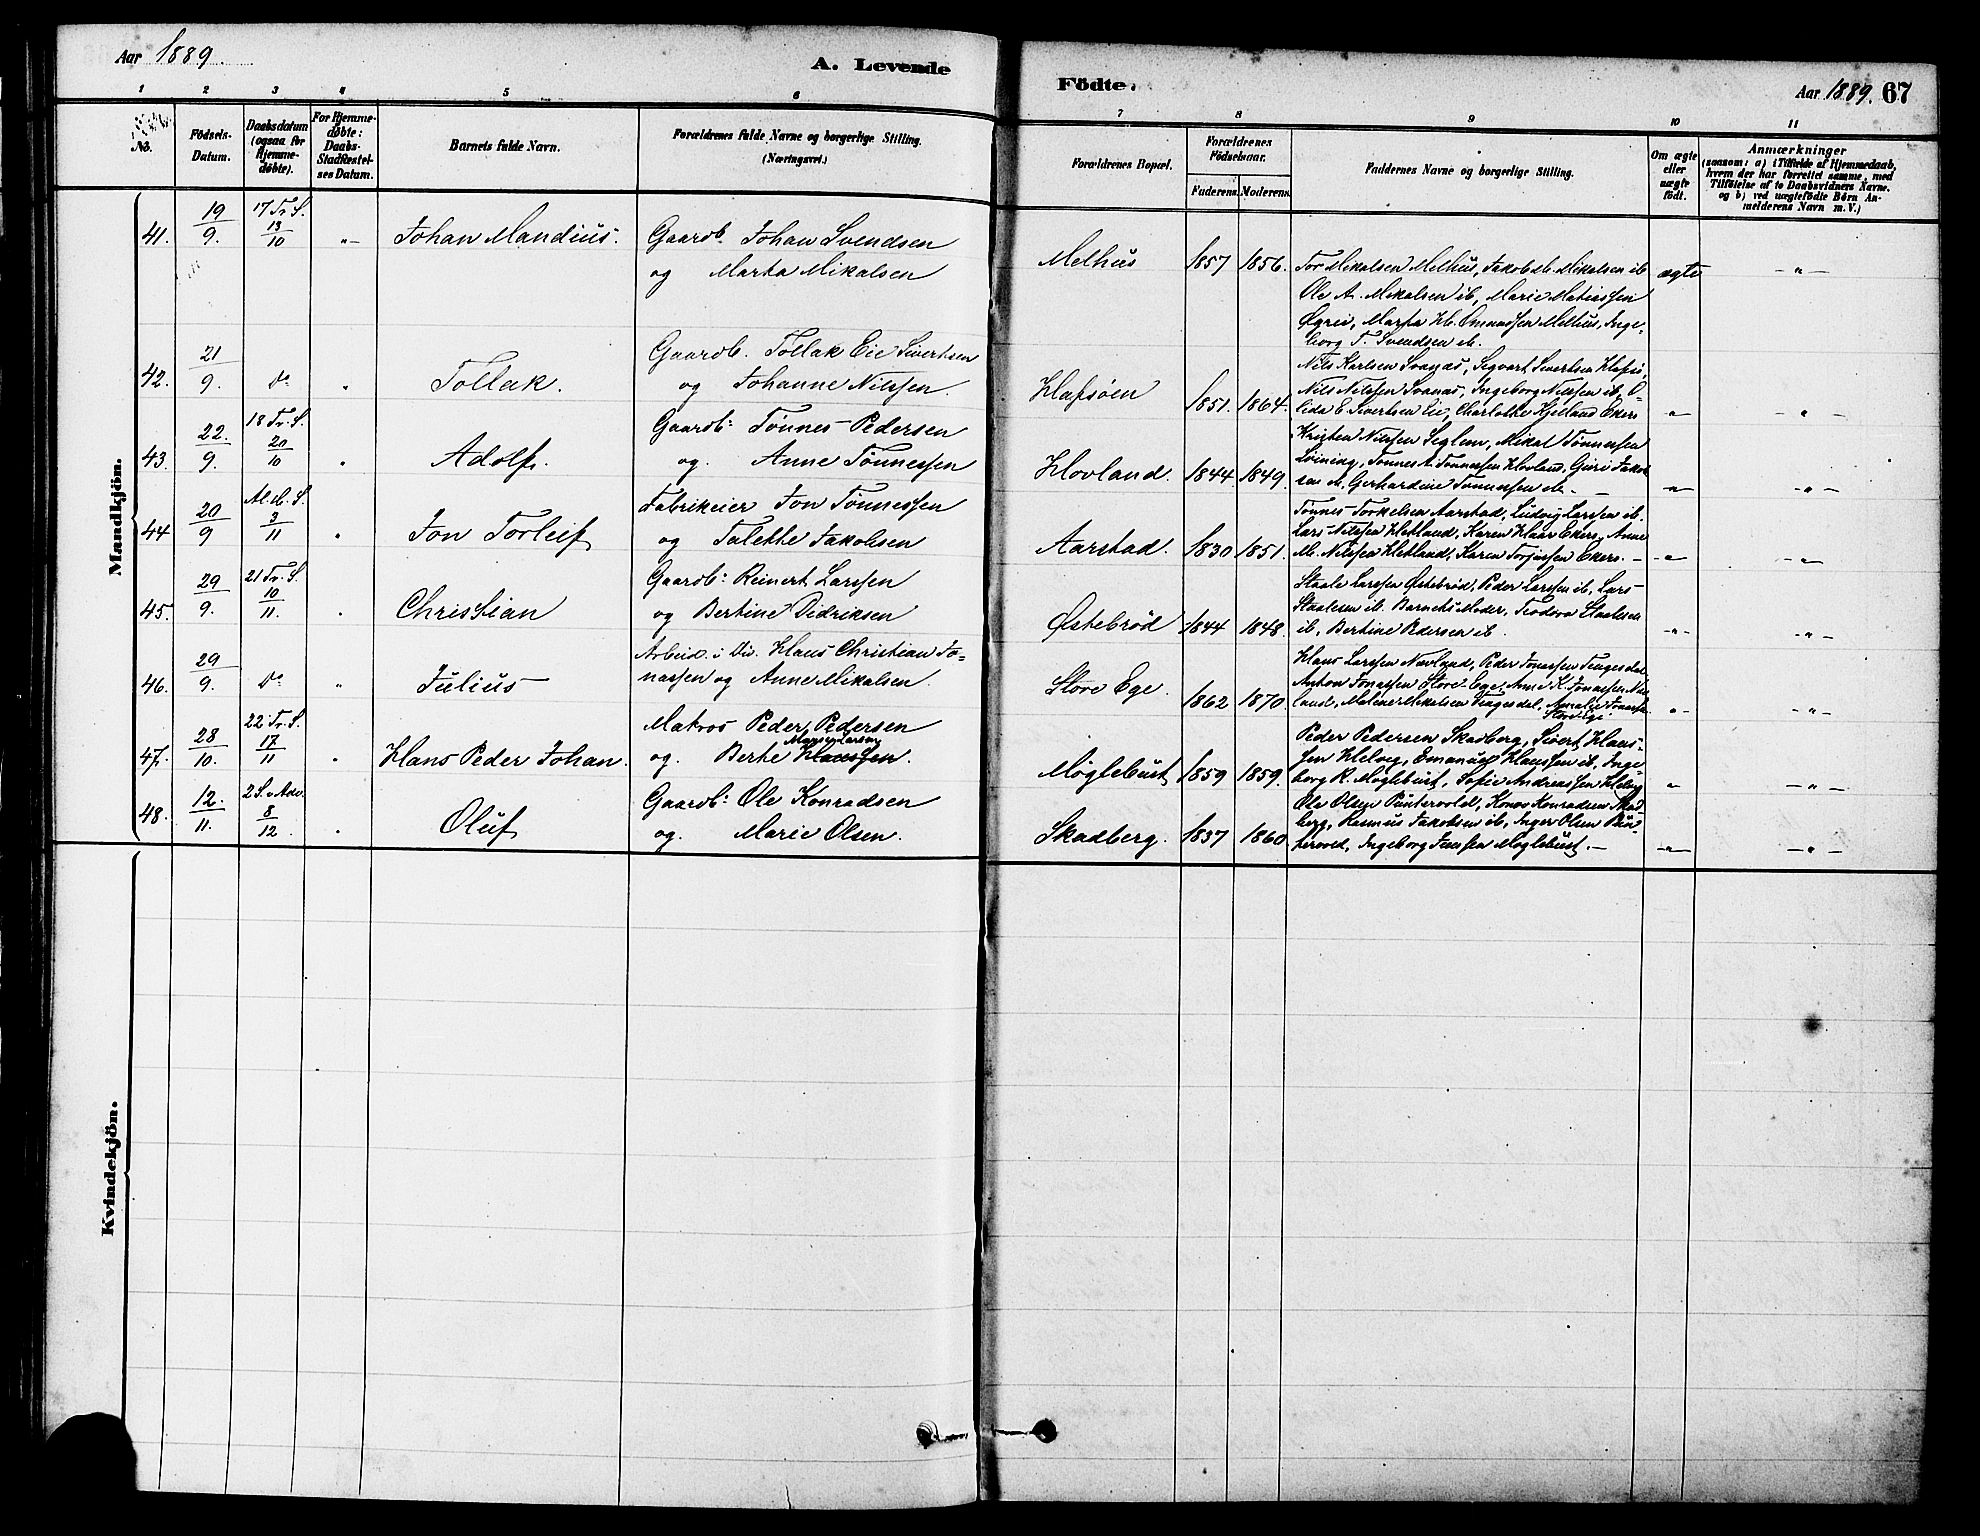 Aar 1889.
A. Levende
Födte.
Aar 1889. 67
1 2 3 4 5 6 7 8 9 10 11
No.
Födsels-Datum.
Daabsdatum (ogsaa for Hjemme-døbte).
For Hjemme-døbte: Daabs-Stadfæstel-ses Datum.
Barnets fulde Navn.
Forældrenes fulde Navne og borgerlige Stilling. (Næringsvei.)
Forældrenes Bopæl.
Forældrenes Födselsaar.
Faderens. Moderens.
Faddernes Navne og borgerlige Stilling.
Om ægte eller uægte født.
Anmærkninger
(saasom: a) i Tilfælde af Hjemmedaab,
hvem der har forrettet samme, med
Tilføielse af to Daabsvidners Navne.
og b) ved uægtefødte Børn An-
melderens Navn m.V.)
Mandkjön.
41. 19/9. 17 Tr. S. 13/10 " Johan Mandius. Gaardb. Johan Svendsen
og Marta Mikalsen
Melhus 1857 1856. Tor Mikalsen Melhus, Jakob M. Mikalsen ib
Ole A. Mikalsen ib, Marie Matiassen
Øgrei, Marta H. Omundsen Melhus, Inge-
borg T. Svendsen ib.
ægte – " –
42. 21/9. Do " Tollak. Gaardb. Tollak Eie Sivertsen
og Johanne Nilssen.
Hafsøen 1851. 1864. Nils Karlsen Svanæs, Segvart Sivertsen Hafsø,
Nils Nilssen Svanæs, Ingeborg Nilssen ib, O-
lida E. Sivertsen Eie, Charlotte Kjelland Ekers
" – " –
43. 22./9. 18 Tr. S. 20/10 " Adolf. Gaardb: Tönnes Pedersen
og. Anne Tönnessen
Hovland. 1844 1849. Kristen Nilssen Seglem, Mikal Tönnessen
Tönnes A. Tönnessen Hovland, Guri Jakob-
sen ib, Gerhardine Tönnessen ib. –
" – " –
44 20/9 Al. H. S. 3/11 " Jon Torleif Fabrikeier Jon Tönnessen
og Talette Jakobsen
Aarstad. 1830 1851. Tönnes Torkelsen Aarstad, Ludvig Larssen ib.
Lars Nilssen Hetland, Karen Haar Ekers, Anne
M. Nilssen Hetland, Karen Torjussen Ekers. –
" – " –
45. 29/9. 21 Tr. S. 10/11. " Christian Gaardb: Reinert Larssen
og Bertine Didriksen
Østebrød 1844 1848. Staale Larssen Østebrød, Peder Larssen ib, Lars
Staalesen ib. Barnets Moder, Teodora Staalesen
ib, Bertine Pedersen ib.
" – " –
46. 29/9. Do " Julius Arbeid. i Div. Hans Christian Jo=
nassen og Anne Mikalsen.
Store Ege. 1862 1870 Hans Larssen Nævland, Peder Jonassen Tengesdal
Anton Jonassen Store-Ege, Anne K. Jonassen Næv
land, Malene Mikalsen Tengesdal, Amalie Jonassen
Store Egi
" – " –
47. 28/10. 22 Tr. S. 17/11 " Hans Peder Johan. Matros Peder Pedersen
og. Berte Hanssen.
Møglebust 1859 1859. Peder Pedersen Skadberg, Sivert Hans-
sen Helvig, Emanuel Hanssen ib, Inge
borg R. Møglebust, Sofie Andreassen Helvig
" – " –
48. 12./11. 2 S. i Adv. 8/12 " Oluf Gaardb: Ole Konradsen
og. Marie Olsen.
Skadberg. 1837 1860 Ole Olsen Puntervold, Konrad Konradsen Skad
berg, Rasmus Jakobsen ib, Inger Olsen Pun-
tervold, Ingeborg Jenssen Møglebust. –
" – " –
Kvindekjön.